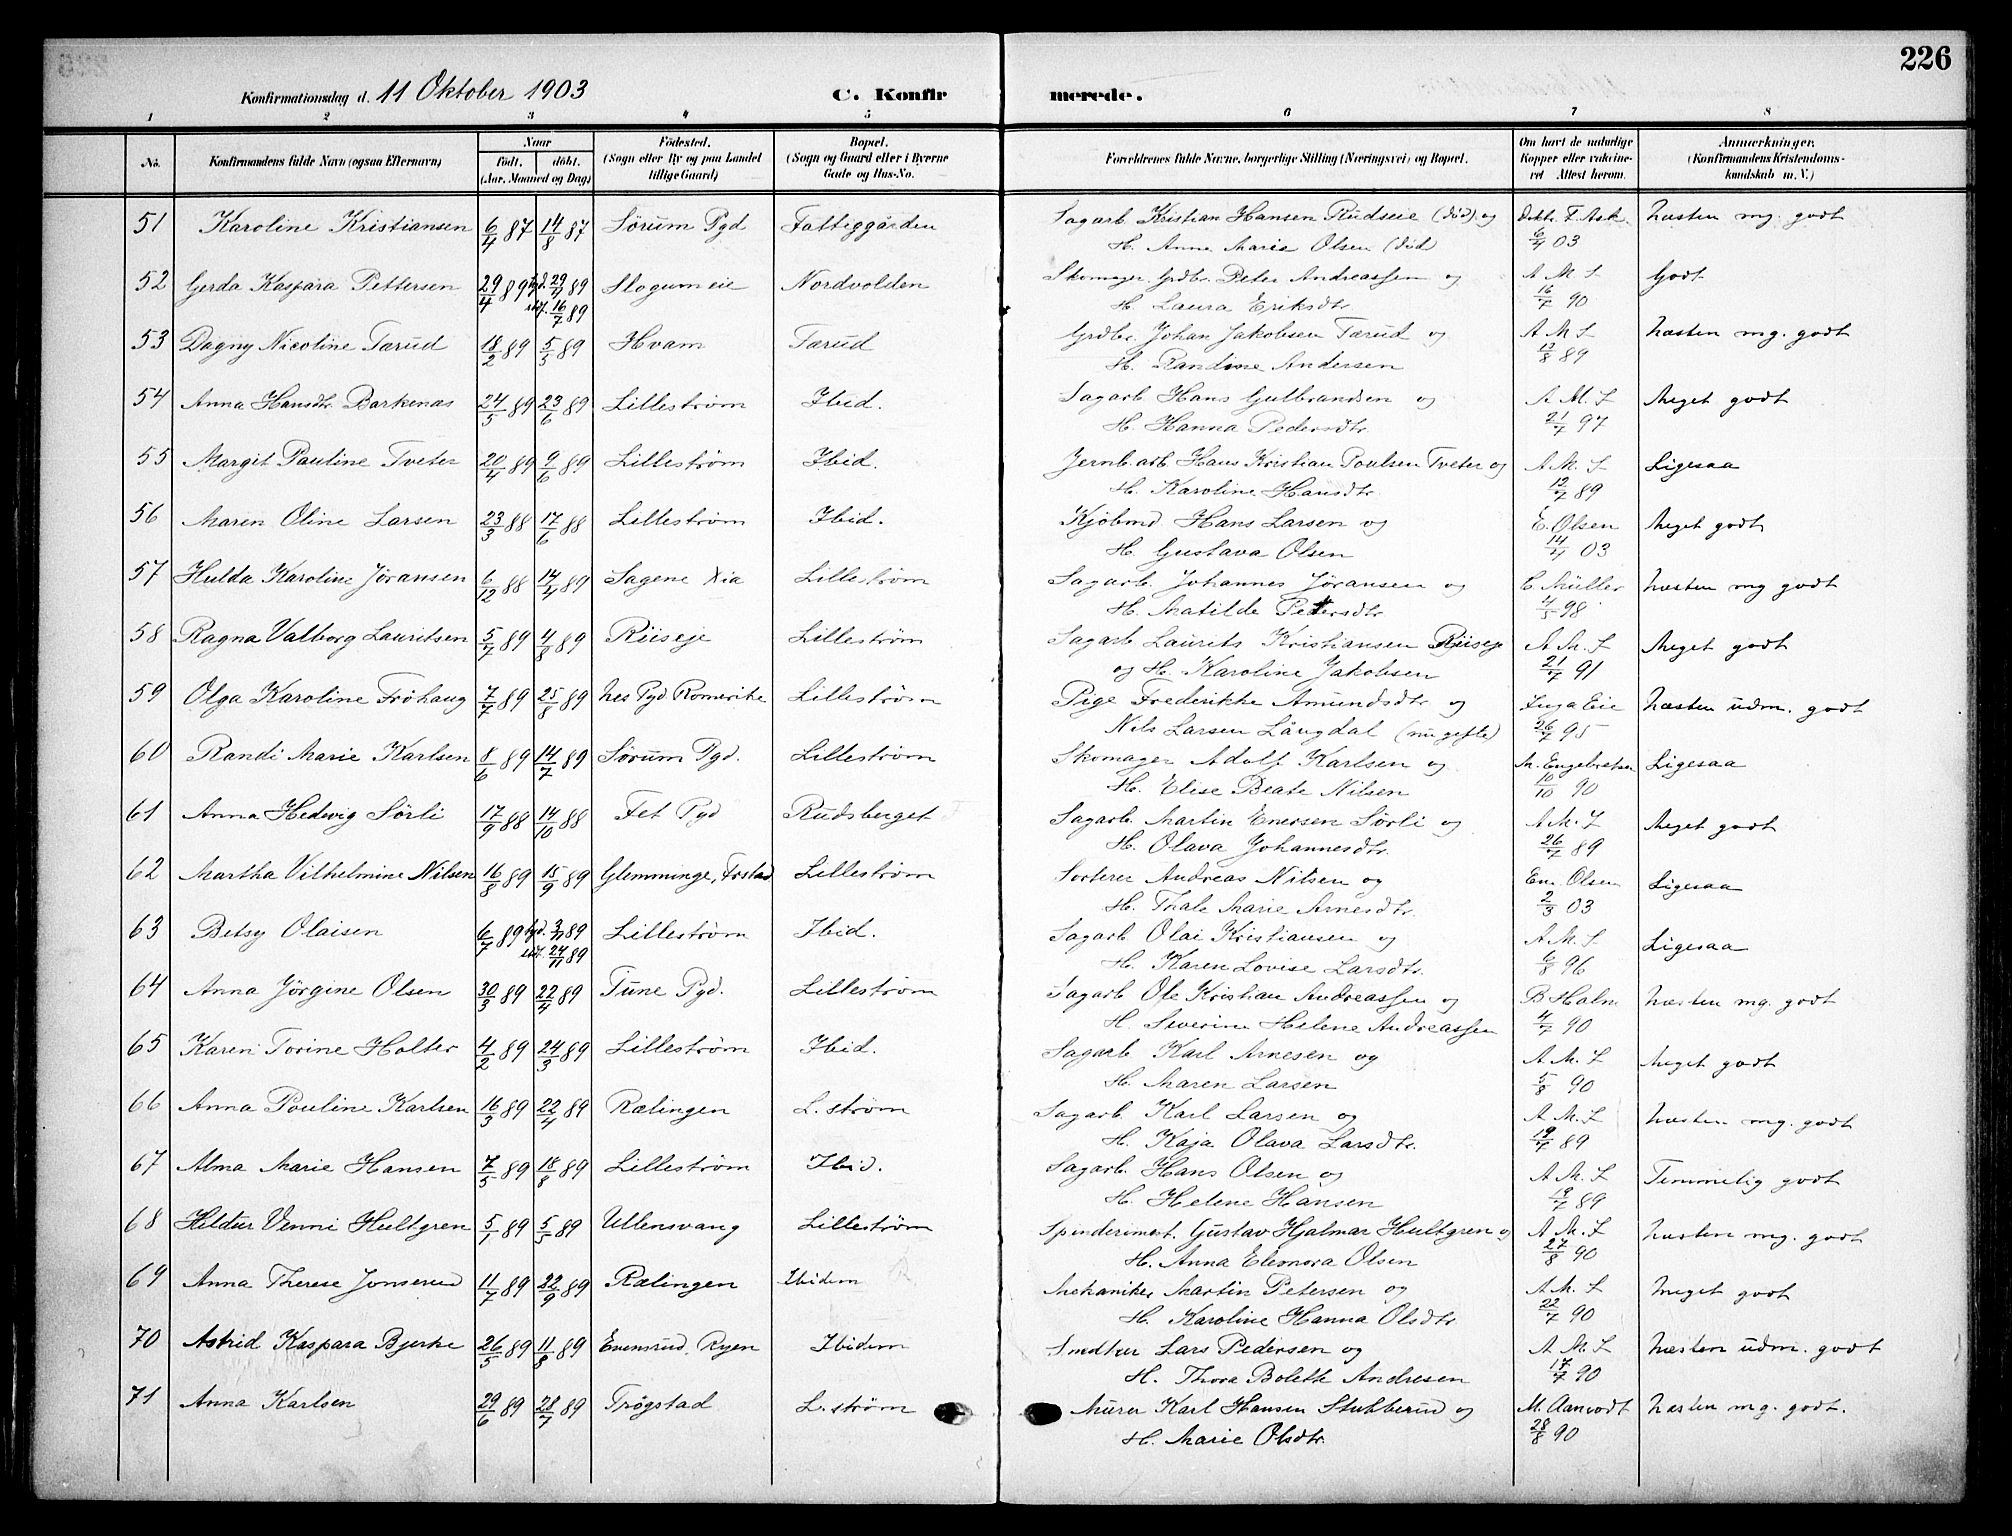 226
Konfirmationsdag d. 11 Oktober 1903 C. Konfirmerede.
1 2 3 4 5 6 7 8
No. Konfirmandens fulde Navn (ogsaa Efternavn) Naar født, døbt. (Aar, Maaned og Dag) Fødested. (Sogn eller By og paa Landet tillige Gaard) Bopæl. (Sogn og Gaard eller i Byerne Gade og Hus-No. Forældrenes fulde Navne, borgerlige Stilling (Næringsvei) og Bopæl. Om havt de naturlige Kopper eller vaccineret Attest herom. Anmærkninger. (Konfirmandens Kristendomskundskab m. V.)
51 Karoline Kristiansen 6/4 87 14/8 87 Sørum Pgd Fattiggården Sagarb. Kristian Hansen Rudseie (død) og Dokt. F. Ask næsten mg. godt
H. Anne Marie Olsen (død) 6/4 03
52 Gerda Kaspara Pettersen 29/4 89 29/4 89 Slogumeie Nordvolden Skomager, Grdbr. Peter Andreassen og A M L Godt
16/7 89 H. Laura Eriksdtr. 16/7 90
53 Dagny Nicoline Tærud 18/2 89 5/5 89 Hvam Tærud Grdbr. Johan Jakobsen Tærud og A M L næsten mg. godt
H. Randine Andersen 13/8 89
54 Anna Hansdtr. Barkenæs 24/5 89 23/6 89 Lillestrøm Ibid. Sagarb Hans Gulbrandsen og A. M. L Meget godt
H. Hanna Pedersdtr. 21/7 97
55 Margit Pauline Tveter 20/4 89 9/6 89 Lillestrøm Ibid. Jernb.arb. Hans Kristian Poulsen Tveter og A M. L Ligesaa
H. Karoline Hansdtr. 12/7 89
56 Maren Oline Larsen 23/3 88 17/6 88 Lillestrøm Ibid. Kjøbmd Hans Larsen og E. Olsen Meget godt
H. Gustava Olsen 14/4 03
57 Hulda Karoline Jøransen 6/12 88 14/4 89 Sagene Xia Lillestrøm Sagarb. Johannes Jøransen og C. Müller næsten mg godt
H. Matilde Petersdtr 4/5 98
58 Ragna Valborg Lauritsen 5/7 89 4/8 89 Riiseje Lillestrøm Sagarb Laurits Kristiansen Riiseje A M. L Meget godt
og H. Karoline Jakobsen 21/7 91
59 Olga Karoline Frøhaug 7/7 89 25/8 89 Nes Pgd Romerike Lillestrøm Pige Frederikke Amundsdtr og Inga Eie næsten udm. godt
Nils Larsen Långdal (nu gifte) 26/7 95
60 Randi Marie Karlsen 8/6 89 14/7 89 Sørum Pgd. Lillestrøm Skomager Adolf Karlsen og M. Engebretsen Ligesaa
H. Elise Beate Nilsen 10/10 90
61 Anna Hedevig Sørli 17/9 88 14/10 88 Fet Pgd Rudsberget Sagarb. Martin Enersen Sørli og A M. L Meget godt
H. Olava Johannesdtr. 26/7 89
62 Martha Vilhelmine Nilsen 16/8 89 15/9 89 Glemminge, Frstad Lillestrøm Sorterer Andreas Nilsen og Em. Olsen Ligesaa
H. Thale Marie Arnesdtr. 2/3 03
63 Betsy Olaisen 6/7 89 3/11 89 Lillestrøm Ibid. Sagarb Olai Kristiansen og A M. L Ligesaa
24/11 89 H. Karen Lovise Larsdtr. 6/8 96
64 Anna Jørgine Olsen 30/3 89 22/4 89 Tune Pgd. Lillestrøm Sagarb Ole Kristian Andreassen og B Holm næsten mg. godt
H. Severine Helene Andreassen 4/7 90
65 Karen Torine Holter 4/2 89 24/3 89 Lillestrøm Ibid. Sagarb Karl Arnesen og A M. L Meget godt
H. Maren Larsen 5/8 90
66 Anna Pouline Karlsen 16/3 89 22/4 89 Rælingen L. strøm Sagarb Karl Larsen og A M. L næsten mg. godt
H. Kaja Olava Larsdtr. 19/7 89
67 Alma Marie Hansen 7/5 89 18/8 89 Lillestrøm Ibid. Sagarb. Hans Olsen og A M. L Temmelig godt
H. Helene Hansen 19/7 89
68 Hildur Venni Hultgren 5/1 89 5/5 89 Ullensvang Lillestrøm Spinderimest. Gustav Hjalmar Hultgren og A M. L næsten mg. godt
H. Anna Eleonora Olsen 27/8 90
69 Anna Therese Jonserud 11/7 89 22/9 89 Rælingen Ibidem Mekaniker Martin Petersen og A M. L Meget godt
H. Karoline Hanna Olsdtr. 22/7 90
70 Astrid Kaspara Bjerke 26/5 89 11/8 89 Evensrud, Ryen Ibidem Smedsv Lars Pedersen og A. M L næsten udm. godt
H. Thora Bolette Andresen 17/7 90
71 Anna Karlsen 29/6 89 28/7 89 Trøgstad L. strøm Murer Karl Hansen Stubberud og M. Aanvodt næsten mg. godt.
H. Marie Olsdtr. 28/8 90